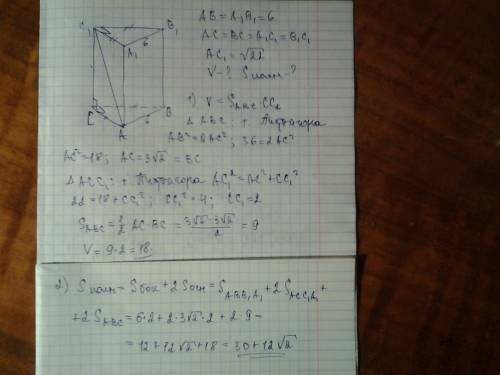 C₁ B₁
6
A₁
C B
6
A
AB = A₁B₁ = 6
AC = BC = A₁C₁ = B₁C₁
AC₁ = √22
V - ? Sполн - ?
1) V = S_ABC · CC₁
Δ ABC: т Пифагора
AB² = 2AC²; 36 = 2AC²
AC² = 18; AC = 3√2 = BC
Δ ACC₁: т Пифагора AC₁² = AC² + CC₁²
22 = 18 + CC₁²; CC₁² = 4; CC₁ = 2
S_ABC = 1/2 AC BC = 3√2 · 3√2 / 2 = 9
V = 9 · 2 = 18
2) Sполн = Sбок + 2Sосн = S_ABB₁A₁ + 2S_ACC₁A₁ +
+ 2S_ABC = 6 · 2 + 2 · 3√2 · 2 + 2 · 9 =
= 12 + 12√2 + 18 = 30 + 12√2